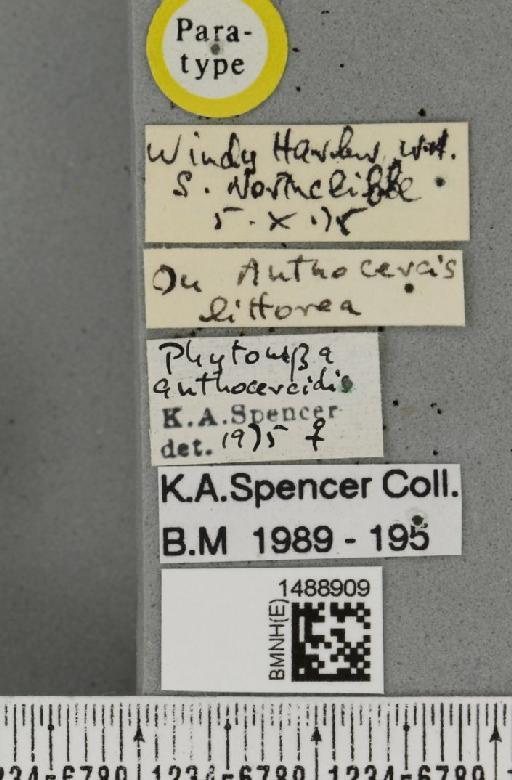 Para-
type
Windy Harbour, W.A.
S. Northcliffe
5.X.75
On Anthocercis
littorea
Phytomyza
anthocercidis
K.A.Spencer
det. 1975 ♀
K.A.Spencer Coll.
B.M 1989 - 195
1488909
BMNH(E)